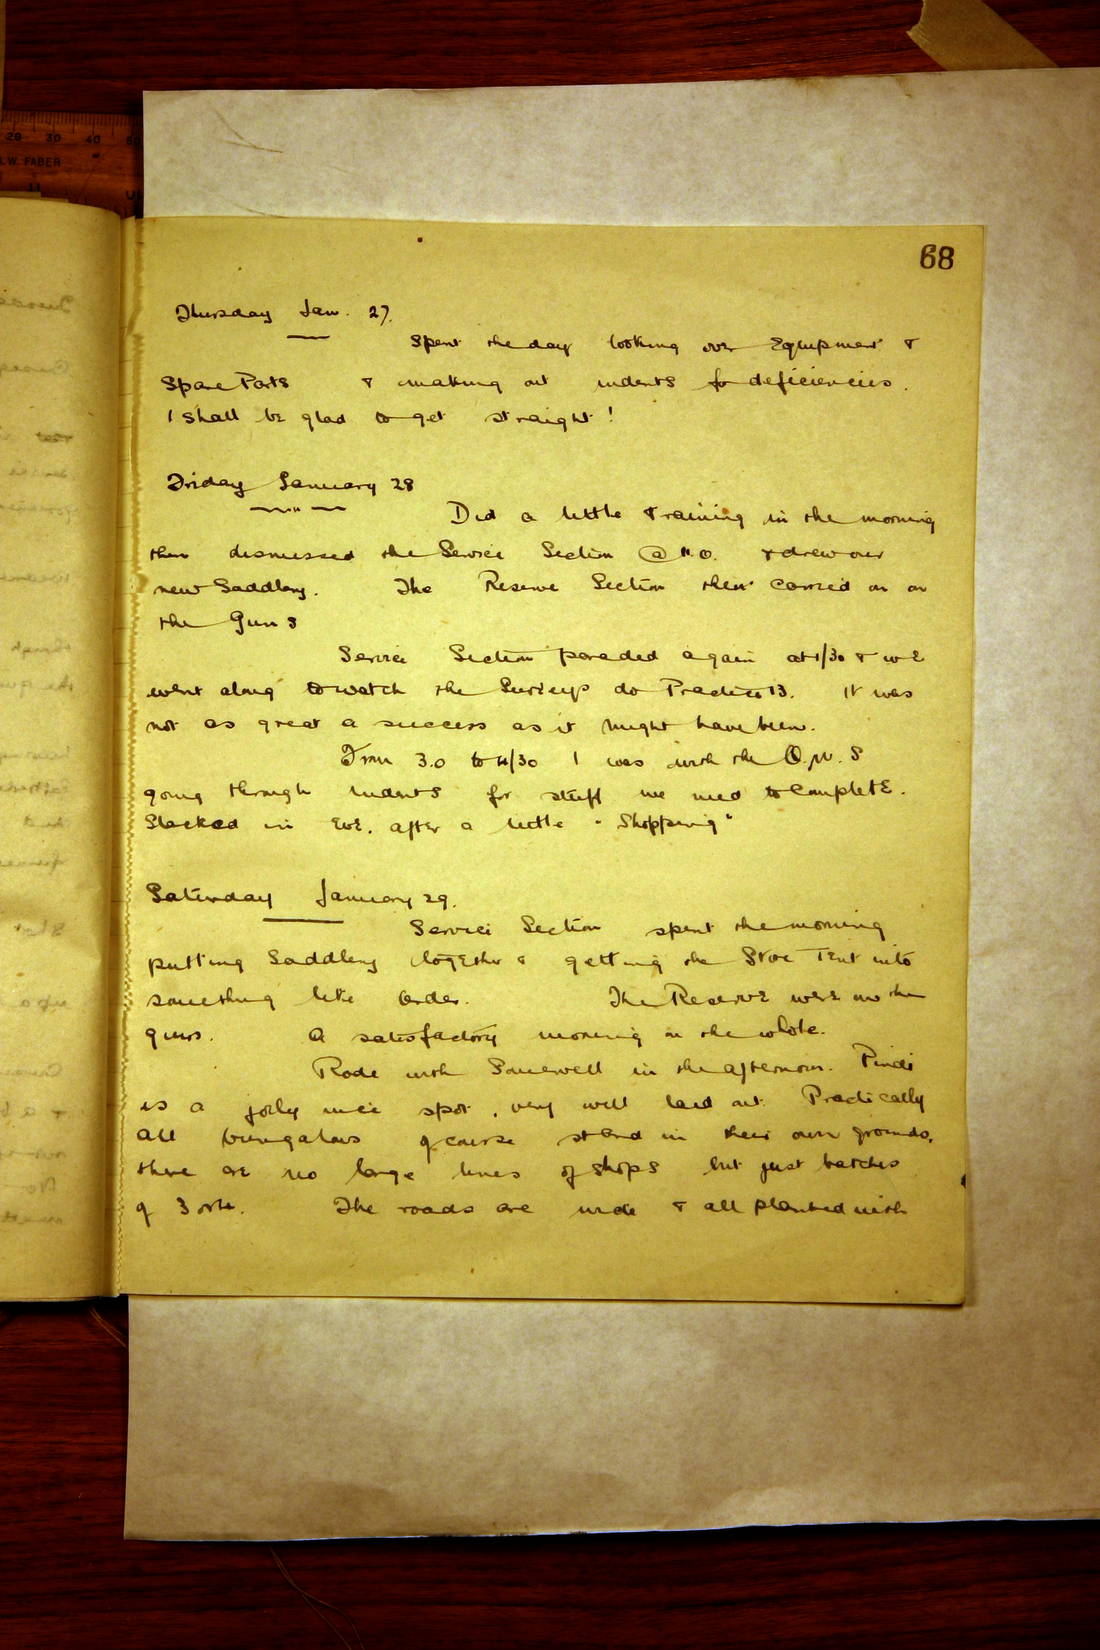 68
Thursday Jan. 27.
Spent the day looking over Equipment &
Spare Parts & making out indents for deficiencies.
I shall be glad to get straight!
Friday January 28
Did a little training in the morning
then dismissed the Service Section @ 11.0. & drew our
new Saddlery. The Reserve Section then carried on on
the Guns
Service Section paraded again at 1/30 & we
went along to watch the Surveys do Practice 13. It was
not as great a success as it might have been.
From 3.0 to 4/30 I was with the Q.M.S
going through indents for stuff we need to complete.
Slacked in Eve. after a little "Shopping"
Saturday January 29.
Service Section spent the morning
putting Saddlery together & getting the Store Tent into
something like Order. The Reserve were on the
guns. A satisfactory morning on the whole.
Rode with in the afternoon. Pindi
is a jolly nice spot, very well laid out. Practically
all bungalows of course stand in their own grounds,
there are no large lines of shops but just batches
of 3 or 4. The roads are wide & all planted with
20 30 40
W. FABER